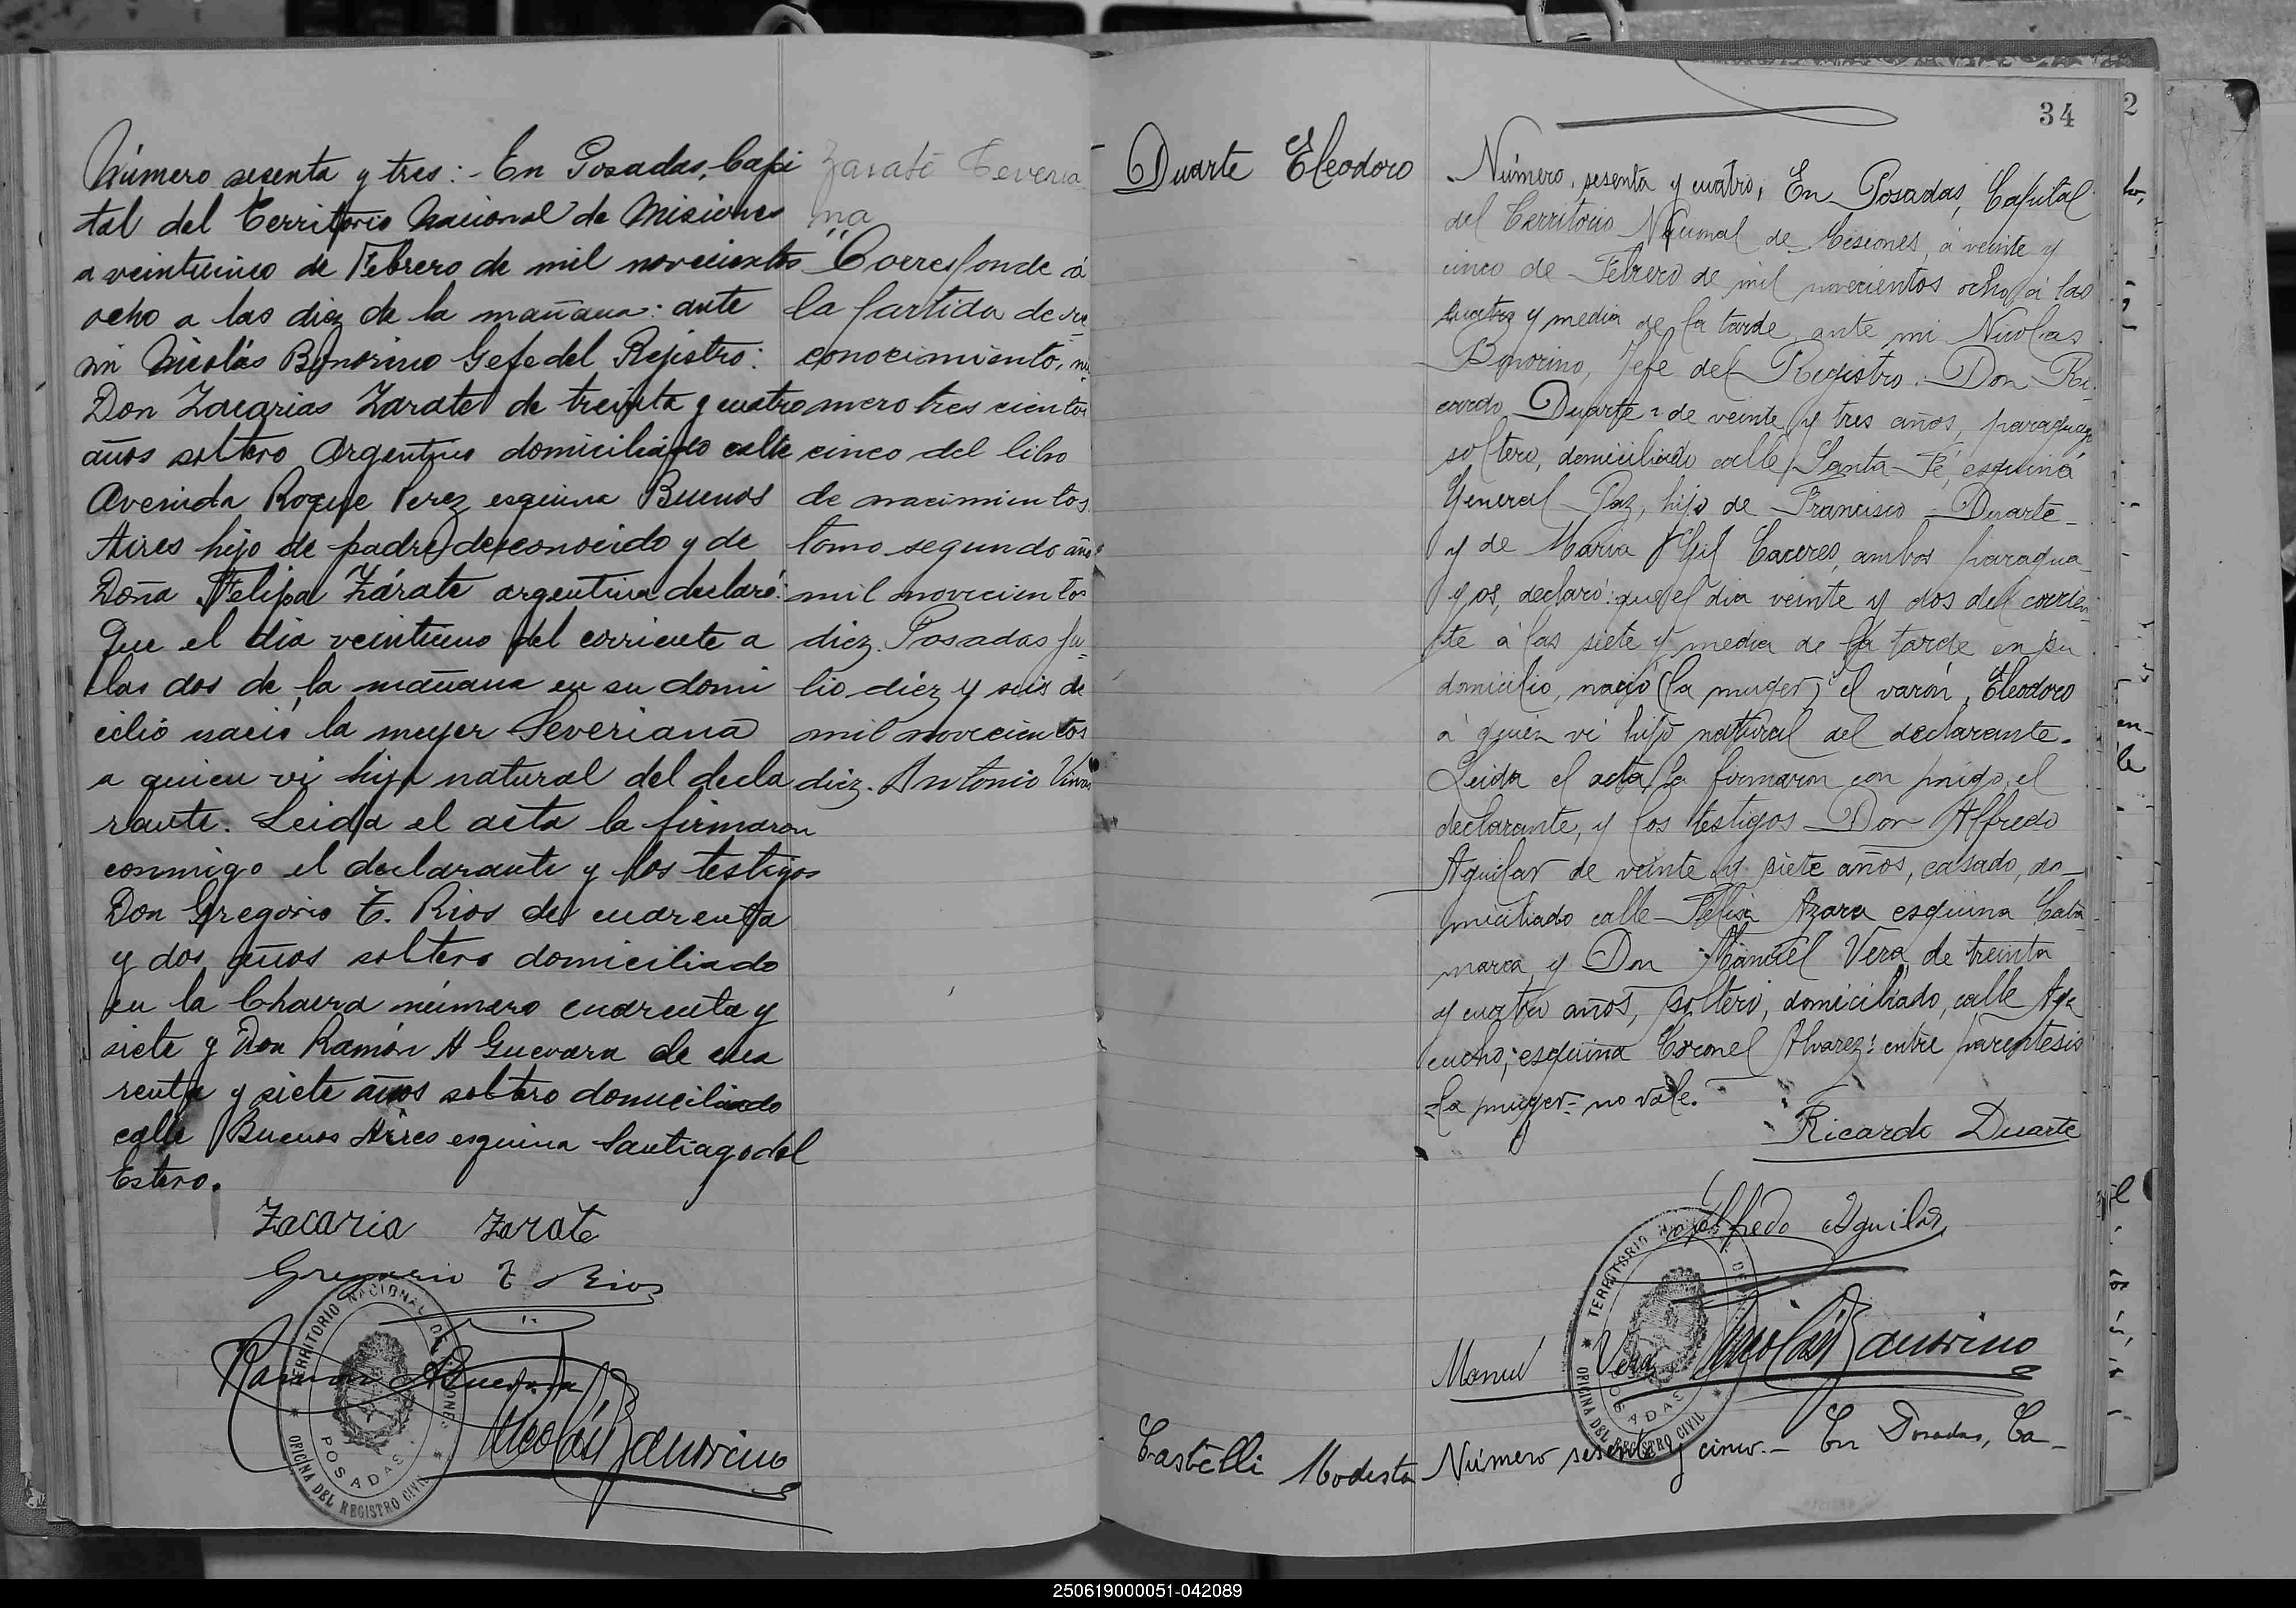 Número sesenta y tres: - En Posadas, Capi
tal del Territorio Nacional de Misiones
a veintiuino de Febrero de mil novecientos
ocho a las diez de la mañana: ante
mi Nicolás Bonorino Gefe del Rejistro:
Don Zacarias Zarate de treinta y cuatro
años soltero Argentino domiciliado calle
Avenida Roque Perez esquina Buenos
Aires hijo de padre desconocido y de
Doña Felipa Zárate argentina declaró:
Que el dia veintiuno del corriente a
las dos de la mañana en su domi
cilio nació la muger Severiana
a quien vi hija natural del decla
rante. Leida el acta la firmaron
conmigo el declarante y los testigos
Don Gregorio T. Rios de cuarenta
y dos años soltero domiciliado
en la Chacra número cuarenta y
siete y Don Ramón A Guevara de cua
renta y siete años soltero domiciliado
calle Buenos Aires esquina Santiago del
Estero.
Zacaria Zarate
Gregorio T Rios
Ramon A Guevara
Nicolás Bonorino
TERRITORIO NACIONAL DE MISIONES
POSADAS
OFICINA DEL REGISTRO CIVIL
Zarate Severia
na
Corresponde á
la partida de re
conocimiento, nu
mero tres cientos
cinco del libro
de nacimientos
tomo segundo año
mil novecientos
diez. Posadas Ju-
lio diez y seis de
mil novecientos
diez. Antonio
34
2
Duarte Eleodoro
Número, sesenta y cuatro, En Posadas, Capital
del Territorio Nacional de Misiones, á veinte y
cinco de Febrero de mil novecientos ocho á las
cuatro y media de la tarde, ante mi Nicolas
Bonorino, Jefe del Registro. Don Ri-
cardo Duarte de veinte y tres años, paraguayo
soltero, domiciliado calle Santa-Fé, esquina
General Paz, hijo de Francisco Duarte
y de Maria Gil Caceres, ambos paragua-
yos, declaró: que el dia veinte y dos del corrien-
te á las siete y media de la tarde en su
domicilio, nació (la muger) el varón, Eleodoro
á quien vi hijo natural del declarante.
Leida el acta la firmaron con migo, el
declarante, y los testigos Don Alfredo
Aguilar de veinte y siete años, casado, do-
miciliado calle Felix Azara esquina Cata-
marca, y Don Manuel Vera, de treinta
y cuatro años, soltero, domiciliado, calle Aya-
cucho, esquina Coronel Alvarez: entre parentesis
-la muger- no vale.
Ricardo Duarte
Alfredo Aguilar
Manuel Vera
Nicolás Bonorino
TERRITORIO NACIONAL DE MISIONES
POSADAS
OFICINA DEL REGISTRO CIVIL
Castelli Modesta
Número sesenta y cinco.- En Posadas, Ca-
250619000051-042089